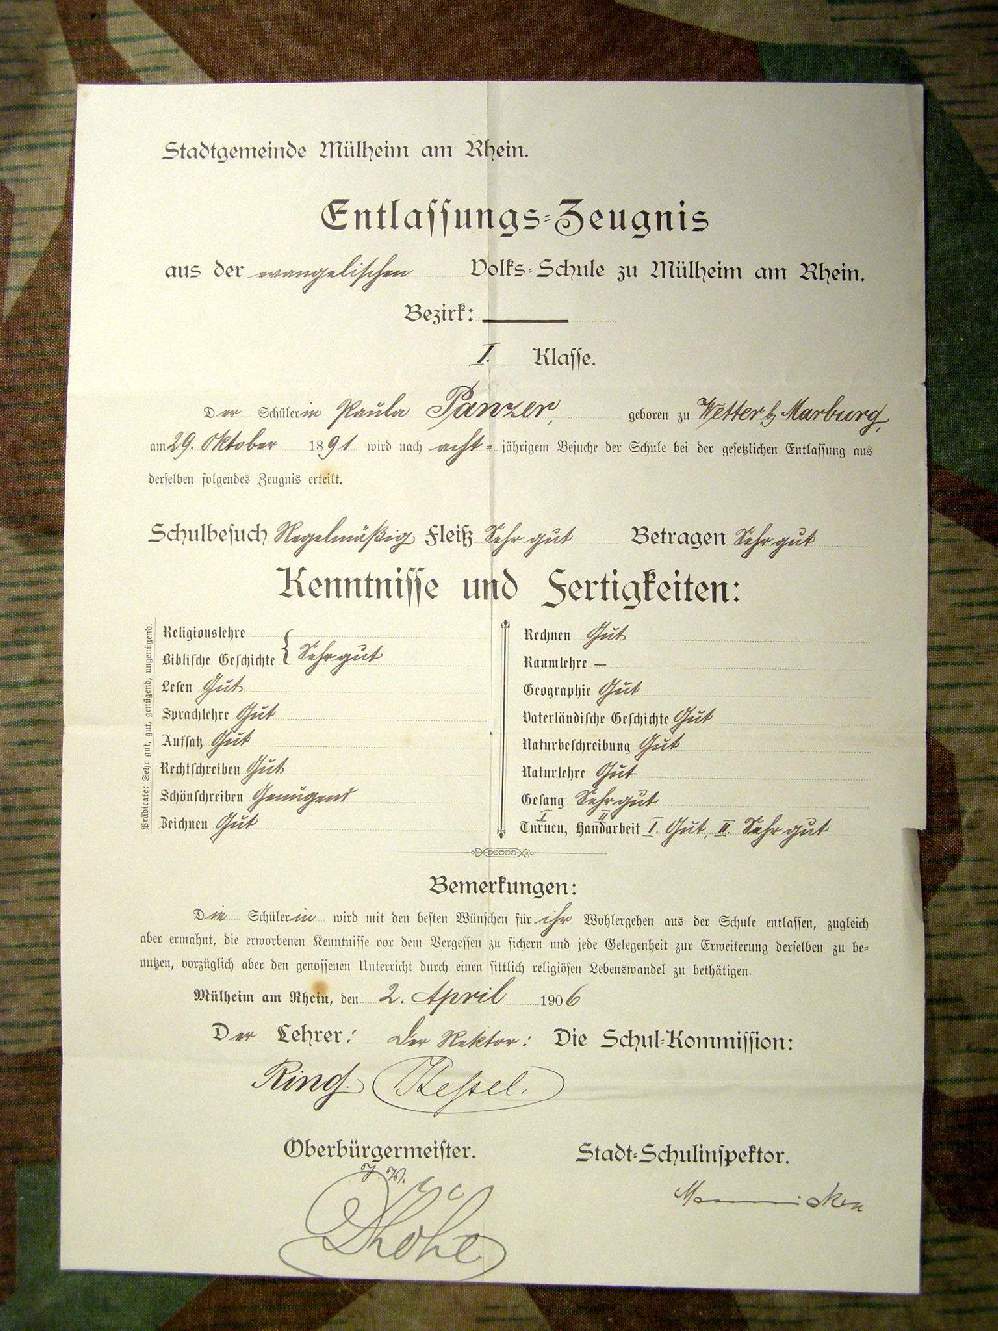 Stadtgemeinde Mülheim am Rhein.
Entlassungs-Zeugnis
aus der evangelischen Volks-Schule zu Mülheim am Rhein.
Bezirk: —
I. Klasse.
Der Schülerin Paula Panzer, geboren zu Wetter b/ Marburg,
am 29. Oktober 1891 wird nach acht-jährigem Besuche der Schule bei der gesetzlichen Entlassung aus
derselben folgendes Zeugnis erteilt.
Schulbesuch Regelmäßig Fleiß Sehr gut Betragen Sehr gut
Kenntnisse und Fertigkeiten:
Prädikate: Sehr gut, gut, genügend, ungenügend.
Religionslehre
Biblische Geschichte } Sehr gut
Lesen Gut
Sprachlehre Gut
Aufsatz Gut
Rechtschreiben Gut
Schönschreiben Genügend
Zeichnen Gut
Rechnen Gut
Raumlehre —
Geographie Gut
Vaterländische Geschichte Gut
Naturbeschreibung Gut
Naturlehre Gut
Gesang Sehr gut
I II
Turnen, Handarbeit I. Gut, II. Sehr gut
Bemerkungen:
Die Schülerin wird mit den besten Wünschen für ihr Wohlergehen aus der Schule entlassen, zugleich
aber ermahnt, die erworbenen Kenntnisse vor dem Vergessen zu sichern und jede Gelegenheit zur Erweiterung derselben zu be-
nutzen, vorzüglich aber den genossenen Unterricht durch einen sittlich religiösen Lebenswandel zu bethätigen.
Mülheim am Rhein, den 2. April 1906
Der Lehrer: Der Rektor: Die Schul-Kommission:
Ring.
Oberbürgermeister. Stadt-Schulinspektor.
J. V.